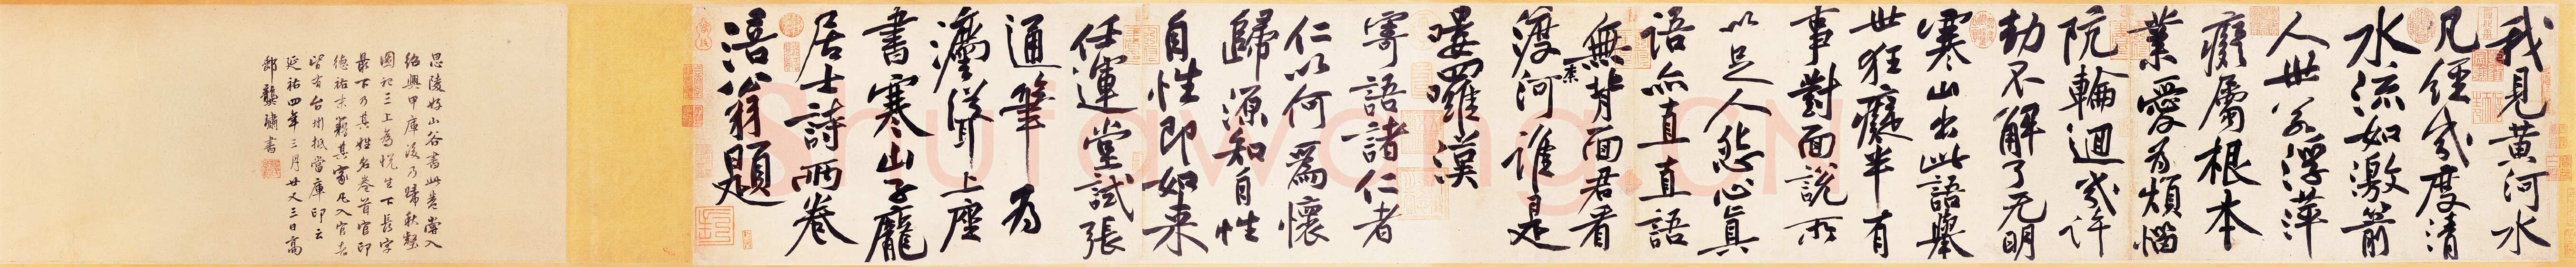 我見黃河水
凡經幾度清
水流如激箭
人世若浮萍
癡屬根本
業愛為煩惱
阬輪迴幾許
劫不解了无明
寒山出此語舉
世狂癡半有
事對面說所
以足人怨心真
語亦直直語
無背面君看
一系
渡河誰是
嘍羅漢
寄語諸仁者
仁以何為懷
歸源知自性
自性即如来
任運堂試張
通筆為
法聳上座
書寒山子龐
居士詩兩卷
涪翁題
思陵好山谷書此卷嘗入
紹興甲庫後乃歸秋壑
圖記三上為悅生下長字
最下乃其姓名卷首官印
德祐末籍其家凡入官者
皆有台州抵當庫印云
延祐四年三月廿又三日高
郵龔璛書
Shufawang.CN